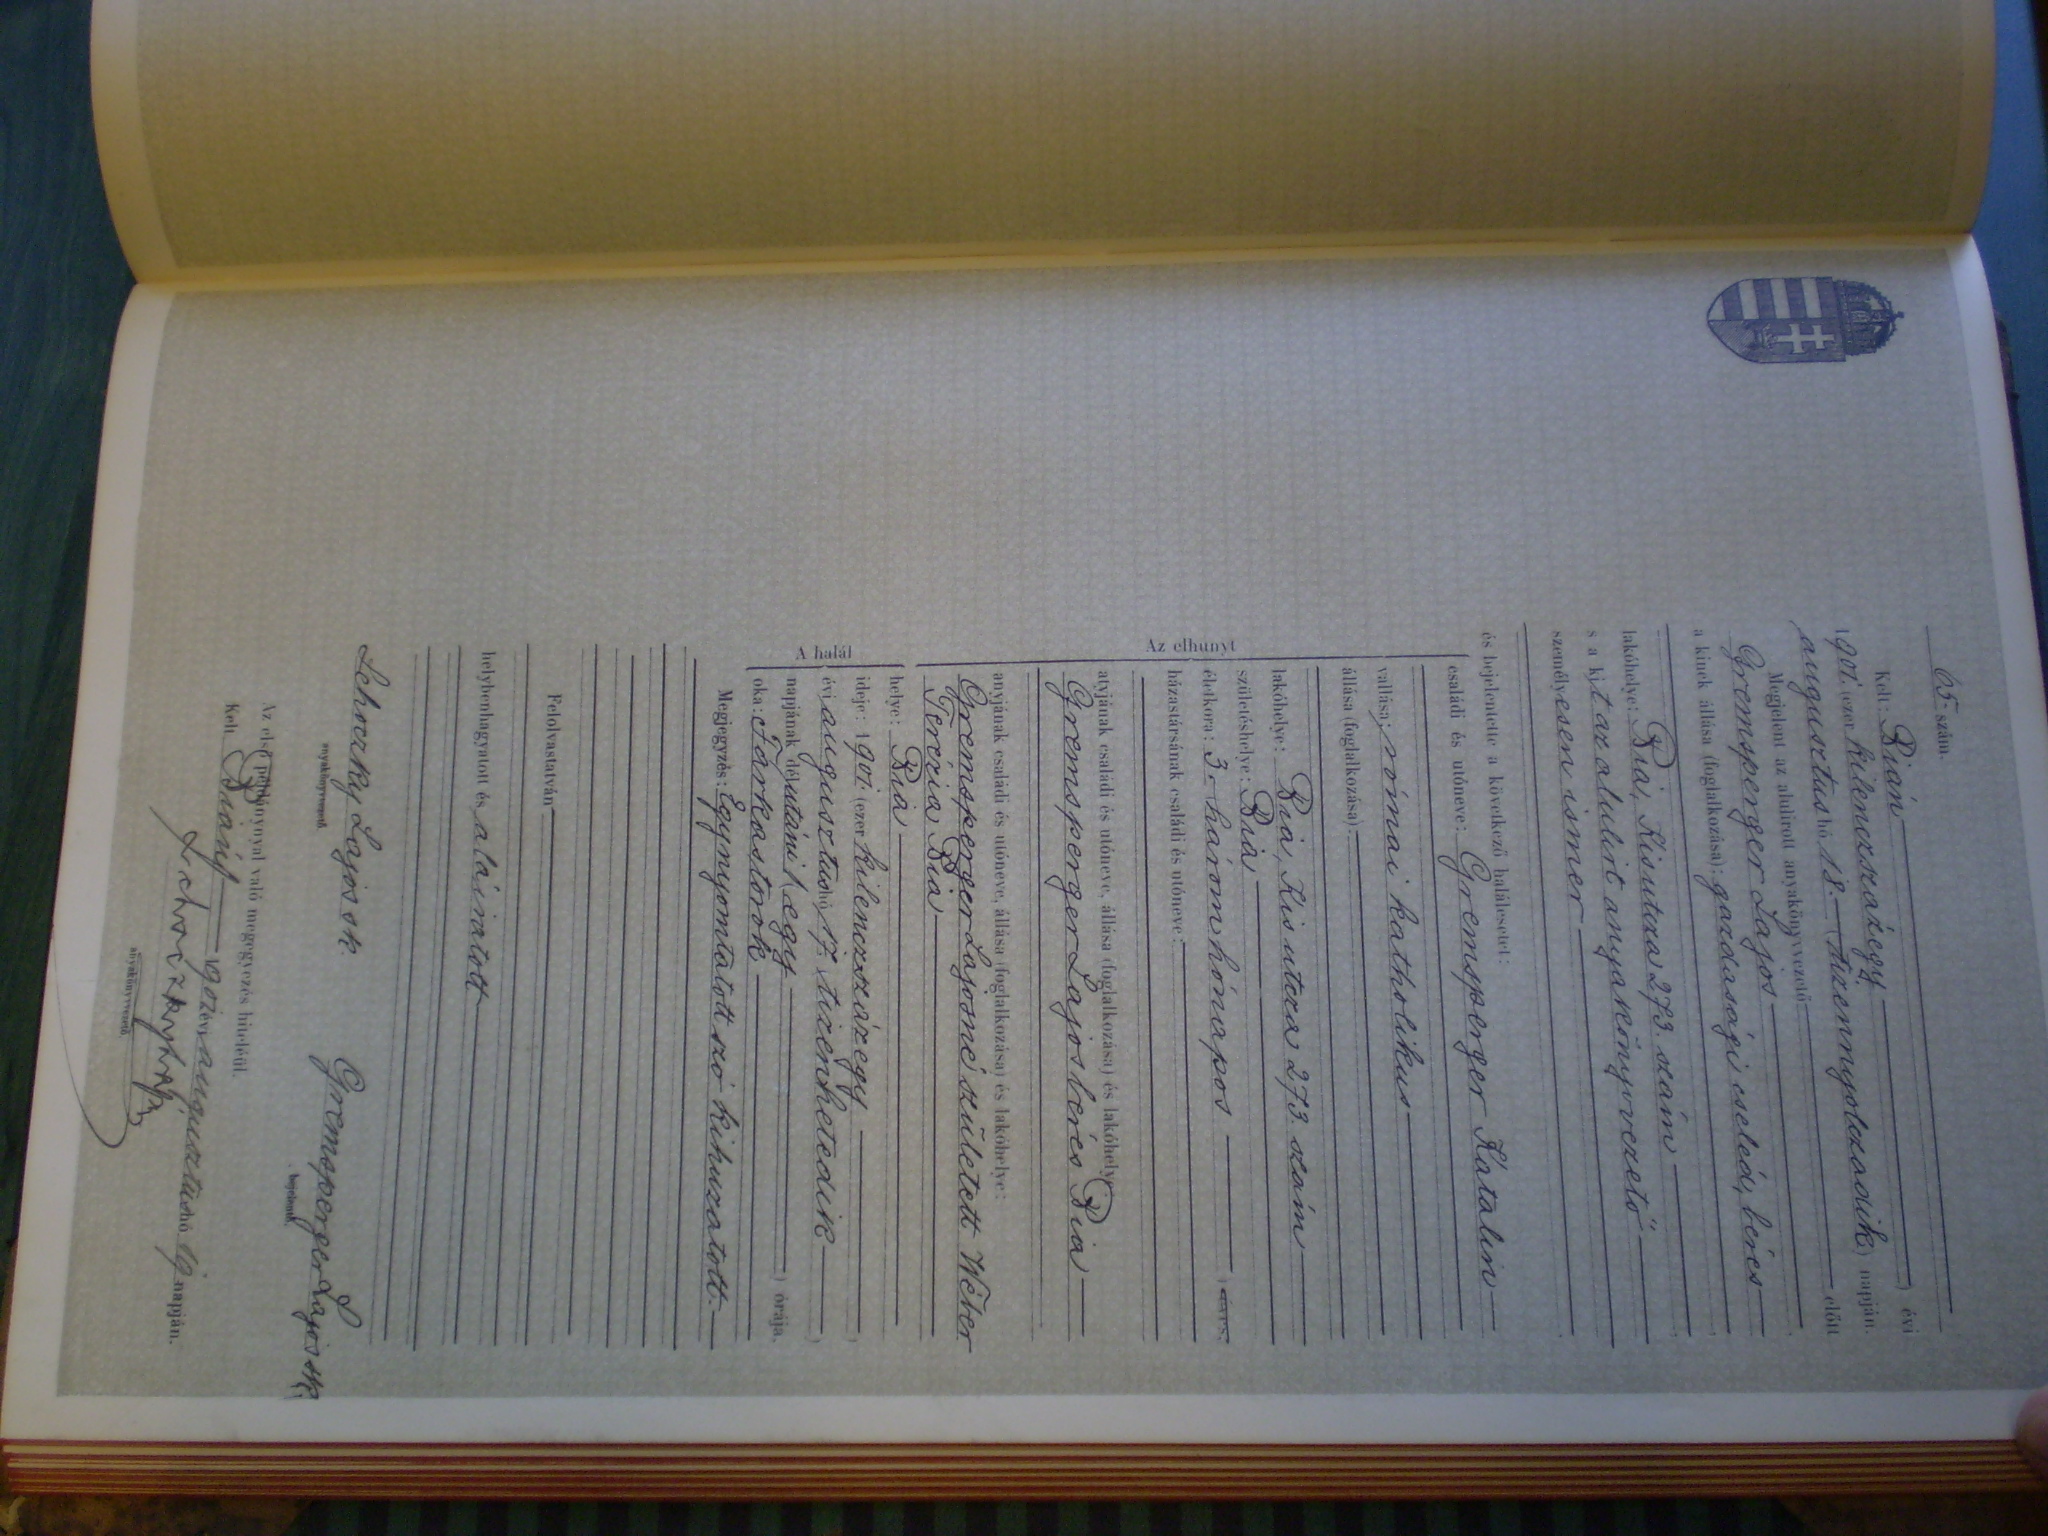 65. szám.
Kelt: Bián ) évi
1901. (ezer kilenczszázegy
augusztus hó 18. (tizennyolczadik ) napján.
Megjelent az alulírott anyakönyvvezető előtt
Gremsperger Lajos
a kinek állása (foglalkozása): gazdasági cseléd, béres
lakóhelye: Biai, Kisutcza 273. szám
s a kit az alulirt anyakönyvvezető
személyesen ismer
és bejelentette a következő halálesetet:
Az elhunyt
családi és utóneve: Gremsperger Katalin
vallása: római katholikus
állása (foglalkozása):
lakóhelye: Bia, Kis utcza 273. szám
születéshelye: Bia
életkora: 3. három hónapos ) éves.
házastársának családi és utóneve:
atyjának családi és utóneve, állása (foglalkozása) és lakóhelye:
Gremsperger Lajos béres Bia
anyjának családi és utóneve, állása (foglalkozása) és lakóhelye:
Gremsperger Lajosné született Wéber
Terézia Bia
A halál
helye: Bia
ideje: 1901. (ezer kilenczszázegy )
évi augusztus hó 17. (tizenhetedik )
napjának délutáni 1 (egy ) órája.
oka: Farkastorok
Megjegyzés: Egy nyomtatott szó kihuzatott.
Felolvastatván
helybenhagyatott és aláiratott
Lehoczky Lajos sk. Gremsperger Lajos sk
anyakönyvvezető. bejelentő.
Az első példánynyal való megegyezés hiteléül.
Kelt Bián, 1901 évi augusztus hó 19 napján.
anyakönyvvezető.